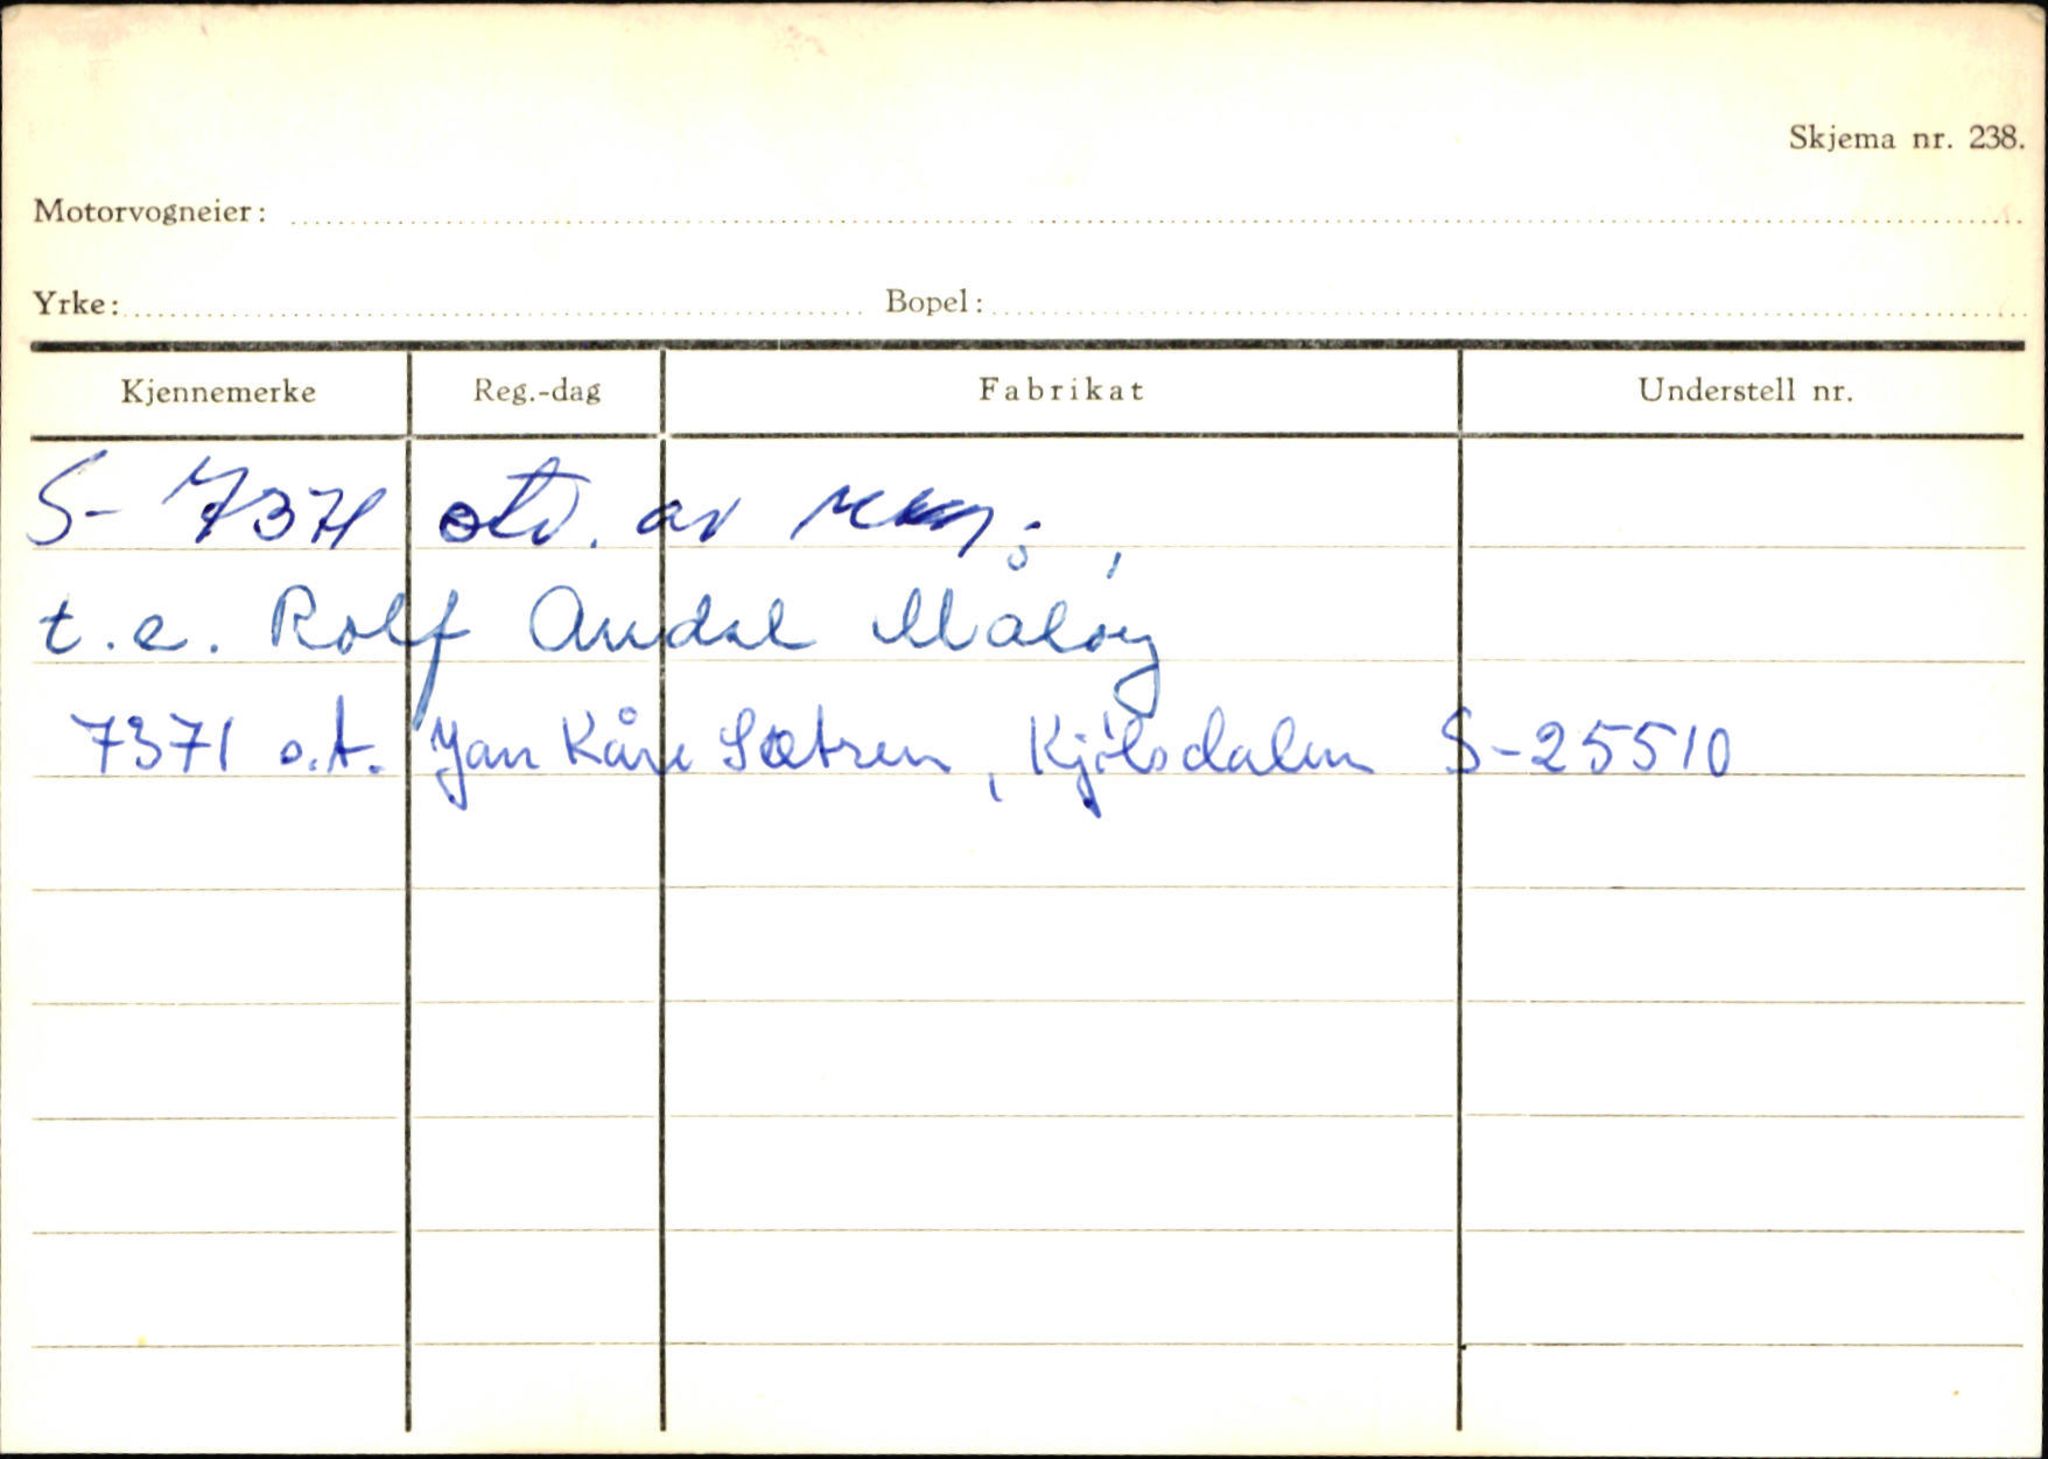 Skjema nr. 238.
Motorvogneier:
Yrke: Bopel:
Kjennemerke Reg.-dag Fabrikat Understell nr.
S- 7371 av
t.e. Rolf Måløy
7371 o.t. Jan Kåre Sætren, Kjølsdalen S-25510